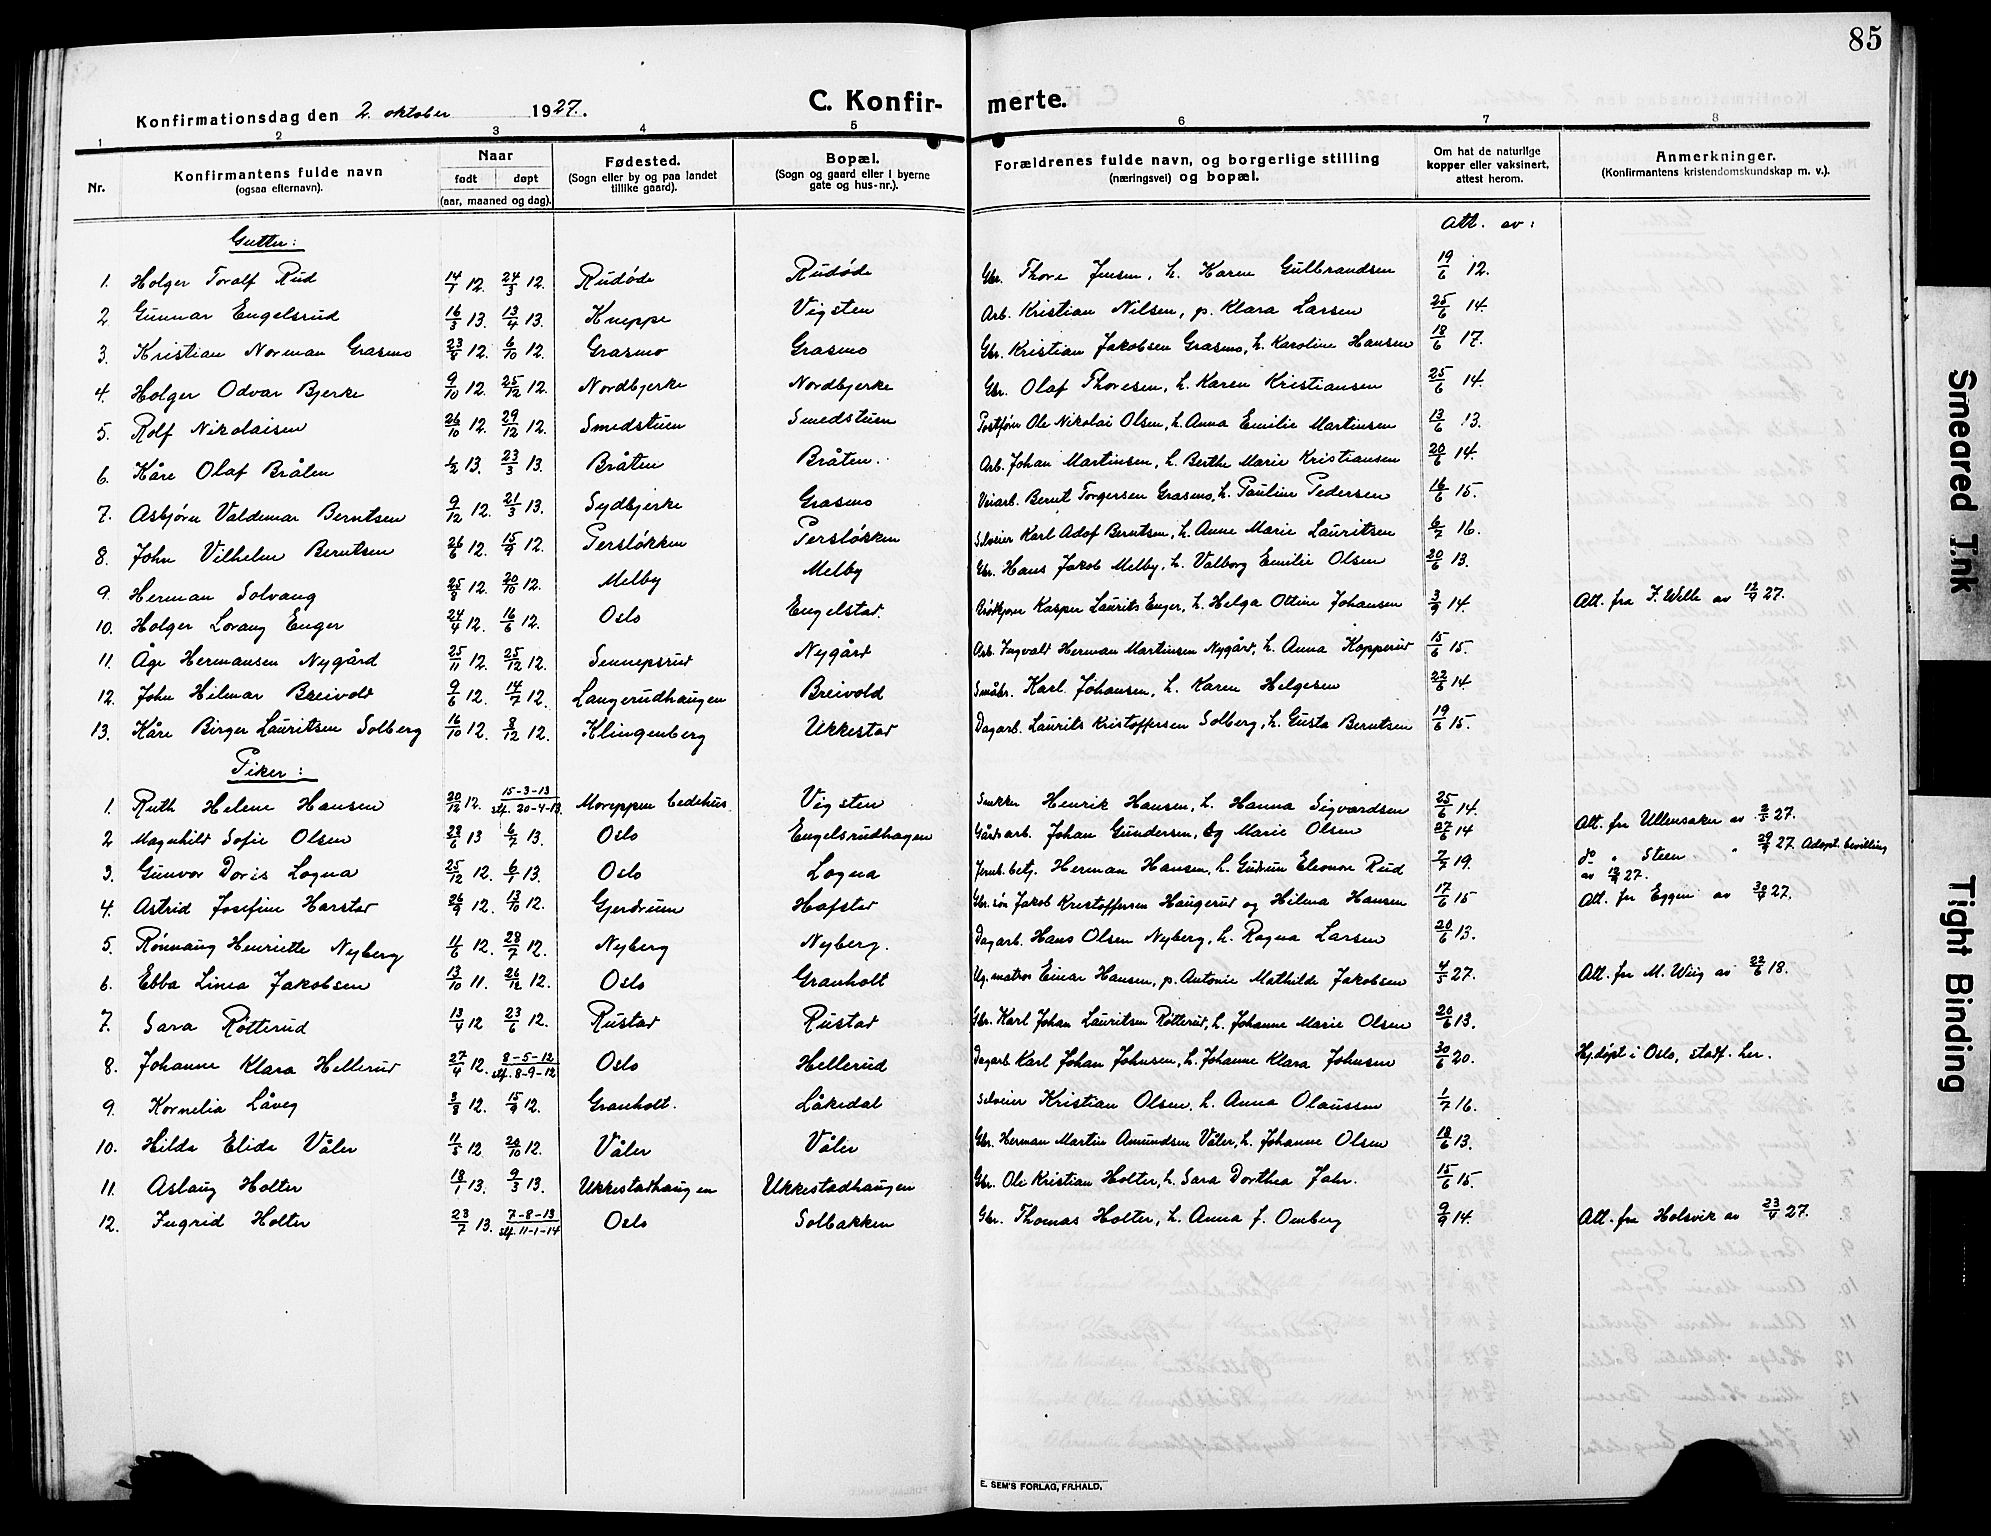 85
Konfirmationsdag den 2. oktober 1927.
C. Konfir- merte.
1 2 3 4 5 6 7 8
Nr.
Konfirmantens fulde navn
(ogsaa efternavn).
Naar
født døpt
(aar, maaned og dag).
Fødested.
(Sogn eller by og paa landet
tillike gaard).
Bopæl.
(Sogn og gaard eller i byerne
gate og hus-nr.).
Forældrenes fulde navn, og borgerlige stilling
(næringsvei) og bopæl.
Om hat de naturlige
kopper eller vaksinert,
attest herom.
Anmerkninger.
(Konfirmantens kristendomskundskap m. v.).
Att. av:
Gutter:
1. Holger Toralf Rud 14/1 12. 24/3 12. Rudøde Rudøde Gbr. Thore Jensen, h. Karen Gulbrandsen 19/6 12.
2 Gunnar Engelsrud 16/3 13. 13/4 13. Kneppe Vigsten Arb. Kristian Nilsen, p. Klara Larsen 25/6 14.
3. Kristian Norman Grasmo 23/8 12. 6/10 12. Grasmo Grasmo Gbr. Kristian Jakobsen Grasmo, h. Karoline Hansen 18/6 17.
4. Holger Odvar Bjerke 9/10 12. 25/12 12. Nordbjerke Nordbjerke Gbr. Olaf Thoresen, h. Karen Kristiansen 25/6 14.
5. Rolf Nikolaisen 26/10 12. 29/12 12. Smedstuen Smedstuen Ole Nikolai Olsen, h. Anna Emilie Martinsen 13/6 13.
6. Kåre Olaf Bråten 1/2 13. 23/3 13. Bråten Bråten. Arb. Johan Martinsen, h. Berthe Marie Kristiansen 20/6 14.
7. Asbjørn Valdemar Berntsen 9/12 12. 21/3 13. Sydbjerke Grasmo Veiarb. Bernt Torgersen Grasmo, h. Pauline Pedersen 16/6 15.
8. John Vilhelm Berntsen 26/6 12. 15/9 12. Persløkken Persløkken Selveier Karl Adof Berntsen, h. Anne Marie Lauritsen 6/7 16.
9. Herman Solvang 25/8 12. 20/10 12. Melby Melby Gbr. Hans Jakob Melby, h. Valborg Emilie Olsen 20/6 13.
10. Holger Lorang Enger 24/4 12. 16/6 12. Oslo Engelstad. Kasper Laurits Enger, h. Helga Ottine Johansen 3/9 14. Att. fra J. Welle av 12/9 27.
11. Åge Hermansen Nygård 25/11 12. 25/12 12. Sennepsrud Nygård Arb. Ingvald Herman Martinsen Nygård, h. Anna Kopperud 15/6 15.
12. John Hilmar Breivold 9/6 12. 14/7 12. Langerudhaugen Breivold Småbr. Karl Johansen, h. Karen Helgesen 22/6 14.
13. Kåre Birger Lauritsen Solberg 16/10 12. 8/12 12. Klingenberg Ukkestad Dagarb. Laurits Kristoffersen Solberg, h. Gusta Berntsen 19/6 15.
Piker:
1. Ruth Helene Hansen 20/12 12. 15-3-13 stf. 20-4-13. Moreppen bedehus. Vigsten Snekker Henrik Hansen, h. Hanna Sigvardsen 25/6 14.
2 Magnhild Sofie Olsen 23/6 13 6/7 13. Oslo Engelsrudhagen Gårdsarb. Johan Gundersen, og Marie Olsen 27/6 14 Att. fra Ullensaker av 2/5 27.
3. Gunvor Doris Logna 25/12 12. 6/1 13. Oslo Logna Jernb.betj. Herman Hansen, h. Gudrun Eleonore Rud 7/7 19. do " Steen " 29/9 27. Adopt. bevilling
av 12/9 27.
4. Astrid Josefine Harstad 26/9 12. 13/10 12. Gjerdrum Hofstad Gbr. søn Jakob Kristoffersen Haugerud og Hilma Hansen 17/6 15 Att. fra Eggen av 30/9 27.
5. Rønnaug Henriette Nyberg 11/6 12. 28/7 12. Nyberg Nyberg. Dagarb. Hans Olsen Nyberg, h. Ragna Larsen 20/6 13.
6. Ebba Linea Jakobsen 13/10 11. 26/12 12. Oslo Granholt Ug. matros Einar Hansen, p. Antonie Mathilde Jakobsen 4/5 27. Att. fra M. Wiig av 22/6 18.
7. Sara Røtterud 13/4 12 23/6 12. Rustad Rustad Gbr. Karl Johan Lauritsen Røtterud, h. Johanne Marie Olsen 20/6 13.
8. Johanne Klara Hellerud 27/4 12. 8-5-12 stf. 8-9-12 Oslo Hellerud Dagarb. Karl Johan Johnsen, h. Johanne Klara Johnsen 30/6 20. Hj.døpt i Oslo, stadf. her.
9. Kornelia Låveg 3/8 12. 15/9 12. Granholt. Låkedal Selveier Kristian Olsen, h. Anna Olaussen 1/7 16.
10. Hilda Elida Våler 11/5 12 20/10 12. Våler Våler Gbr. Herman Martin Amundsen Våler, h. Johanne Olsen 18/6 13.
11. Aslaug Holter 18/1 13. 9/3 13. Ukkestadhaugen Ukkestadhaugen Gbr. Ole Kristian Holter, h. Sara Dorthea Jahr. 15/6 15.
12. Ingrid Holter 23/7 13. 7-8-13 stf. 11-1-14 Oslo Solbakken Gbr. Thomas Holter, h. Anna f. Omberg 9/9 14. Att. fra Holsvik av 23/4 27.
E. SEM'S FORLAG, FR.HALD.
Smeared Ink
Tight Binding